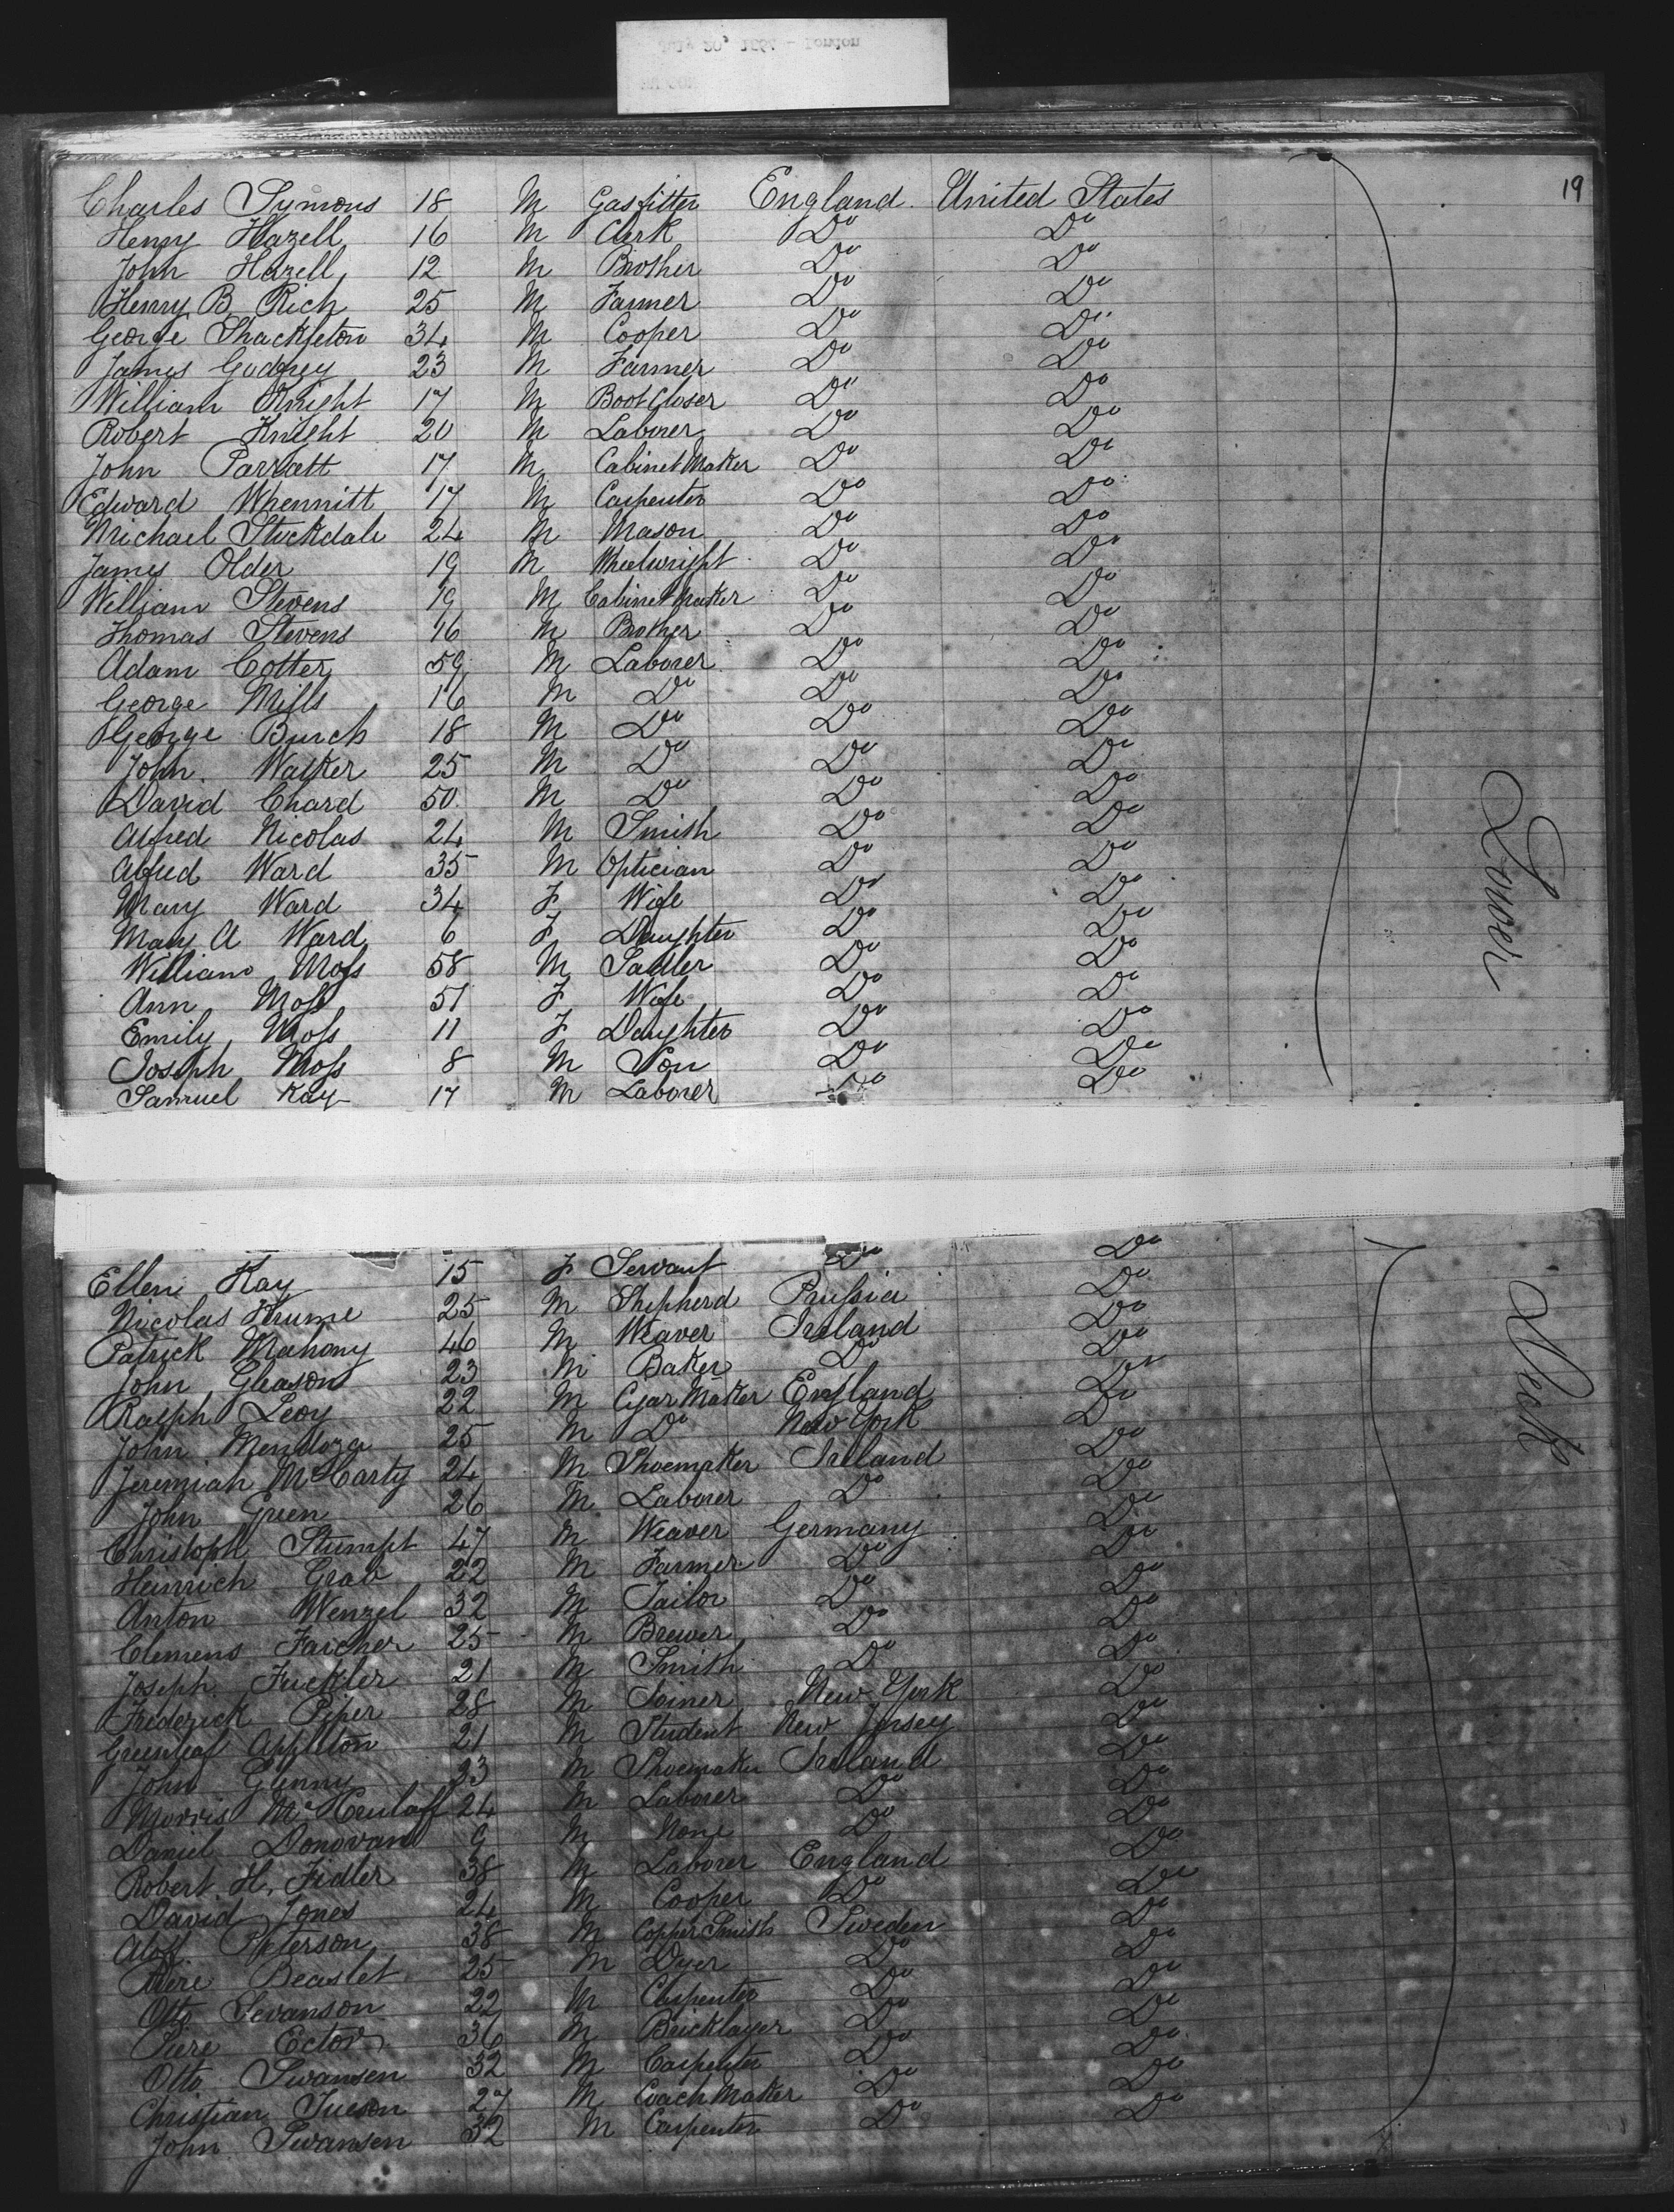 19
Charles Symons 18 M Gasfitter England United States
Henry Hazell 16 M Clerk Do Do
John Hazell 12 M Brother Do Do
Henry B Rich 25 M Farmer Do Do
George Shackleton 34 M Cooper Do Do
James Godfrey 23 M Farmer Do Do
William Knight 17 M Boot Closer Do Do
Robert Knight 20 M Laborer Do Do
John Parratt 17 M Cabinet Maker Do Do
Edward Whennitt 17 M Carpenter Do Do
Michael Stockdale 24 M Mason Do Do
James Older 19 M Wheelwright Do Do
William Stevens 19 M Cabinet Maker Do Do
Thomas Stevens 16 M Brother Do Do
Adam Cotter 59 M Laborer Do Do
George Mills 16 M Do Do Do
George Burch 18 M Do Do Do
John Walker 25 M Do Do Do
David Chard 50 M Do Do Do
Alfred Nicolas 24 M Smith Do Do
Alfred Ward 35 M Optician Do Do
Mary Ward 34 F Wife Do Do
Mary A Ward 6 F Daughter Do Do
William Moss 58 M Sadler Do Do
Ann Moss 51 F Wife Do Do
Emily Moss 11 F Daughter Do Do
Joseph Moss 8 M Son Do Do
Samuel Kay 17 M Laborer Do Do
Lower
Ellen Kay 15 F Servant Do Do
Nicolas Krume 25 M Shepherd Prussia Do
Patrick Mahony 46 M Weaver Ireland Do
John Gleason 23 M Baker Do Do
Ralph Levy 22 M Cigar Maker England Do
John Mendoza 25 M Do New York Do
Jeremiah McCarty 24 M Shoemaker Ireland Do
John Green 26 M Laborer Do Do
Christoph Stumpt 47 M Weaver Germany Do
Heinrich Grab 22 M Farmer Do Do
Anton Wenzel 32 M Tailor Do Do
Clemens Faicher 25 M Brewer Do Do
Joseph Fuckler 21 M Smith Do Do
Frederick Piper 28 M Joiner New York Do
Greenleaf Appleton 21 M Student New Jersey Do
John Glenny 23 M Shoemaker Ireland Do
Morris 24 M Laborer Do Do
Daniel Donovan 9 M None Do Do
Robert H. Fidler 38 M Laborer England Do
David Jones 24 M Cooper Do Do
Aloff Peterson 38 M Copper Smith Sweden Do
Beaslet 25 M Dyer Do Do
Otto Sevanson 22 M Carpenter Do Do
Piere Ector 36 M Bricklayer Do Do
Otto Swansen 32 M Carpenter Do Do
Christian Tueson 27 M Coach Maker Do Do
John Swansen 32 M Carpenter Do Do
Deck